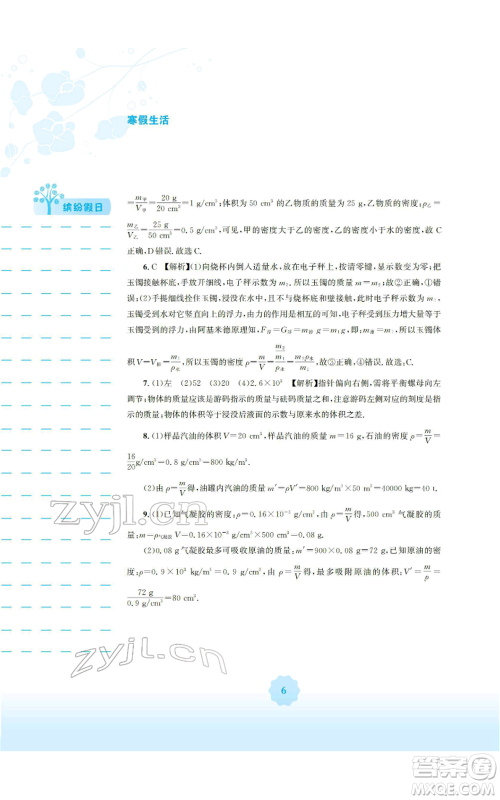 寒假生活
缤纷假日
=m甲/V甲=20 g/20 cm³=1 g/cm³;体积为 50 cm³ 的乙物质的质量为 25 g,乙物质的密度:ρ乙=
m乙/V乙=25 g/50 cm³=0.5 g/cm³,可见,甲的密度大于乙的密度,乙的密度小于水的密度,故 C
正确,D 错误.故选 C.
6. C 【解析】(1)向烧杯内倒入适量水,放在电子秤上,按清零键,显示数变为零;把
玉镯接触杯底,静止时电子秤的示数即为玉镯的质量,显示数为 m₂,故①错误,②正
确.(2)手提细线拴住玉镯,浸没在水中,并且未与烧杯底和壁接触,此时示数为 m₁,
由于力的作用是相互的可知,电子秤受到的压力大小等于玉镯浸没在水中受到的浮
力;玉镯受到的浮力,由阿基米德原理知:F浮=G浮=m₁g=m排g,即:m₁=m排,所以玉镯体
积 V=V排=m₁/ρ水,所以玉镯的密度 ρ=m/V=m₂/(m₁/ρ水)=m₂ρ水/m₁,故③正确,④错误.故选 C.
7. (1)左 (2)52 (3)20 (4)2.6×10³ 【解析】指针偏向右侧,需将平衡螺母向左
调节;物体的质量应该是游码示数和砝码质量之和,注意游码左侧对应的刻度为指
示的质量;物体的体积等于浸没后液面的示数与原来水的体积之差.
8. (1)样品汽油的体积 V=20 cm³,样品汽油的质量 m=16 g,石油的密度 ρ=m/V=
16/20 g/cm³=0.8 g/cm³=800 kg/m³.
(2)由 ρ=m/V得,油罐内汽油的质量 m′=ρV′=800 kg/m³×50 m³=40000 kg=40 t.
9. (1)已知气凝胶的密度:ρ=0.16×10⁻³ g/cm³=0.16 kg/m³,由 ρ=m/V得,气凝胶的质
量:m=ρ气凝胶 V=0.16 kg/m³×100 m³=16 kg.
(2)0.08 g 气凝胶最多可以吸收原油的质量:m′=900×0.08 g=72 g,原油的密
度:ρ=0.9×10³ kg/m³=0.9 g/cm³,由 ρ=m/V得,最多吸附原油的体积:V′=m′/ρ
=72 g/0.9 g/cm³=80 cm³.
6
zyjl.cn
zyjl.cn